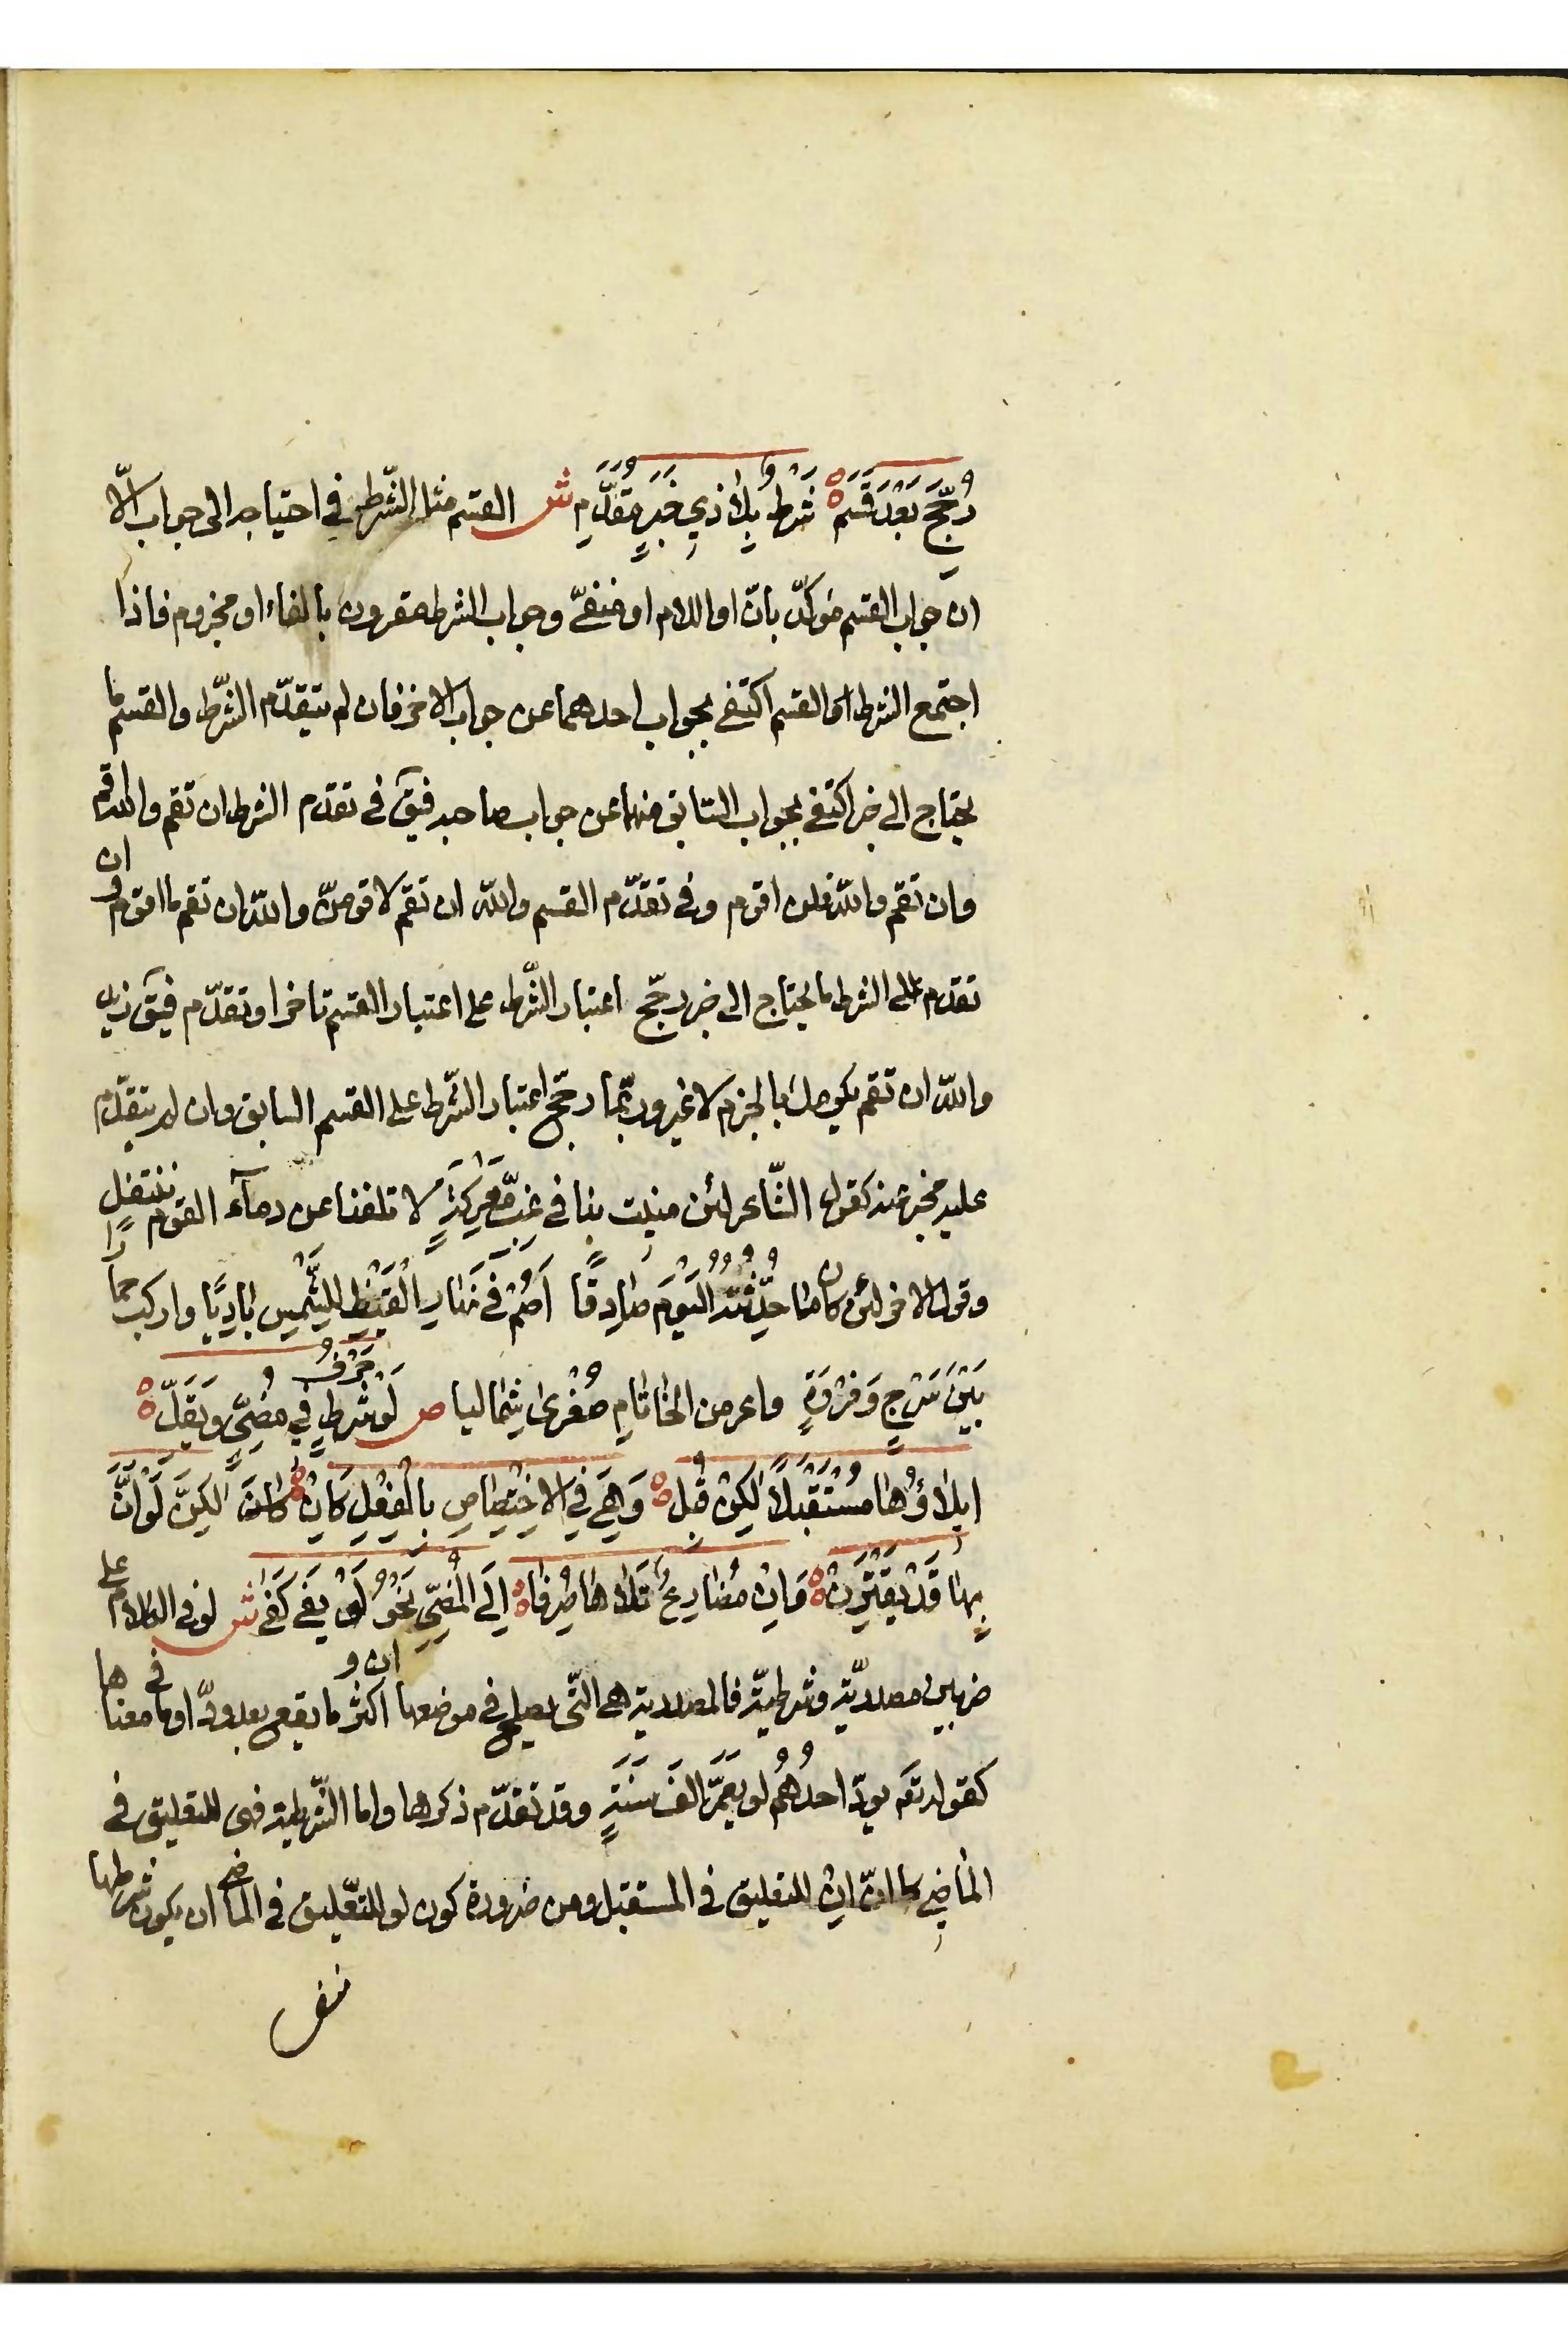 رُجِّحَ بَعْدَ قَسَم ه شَرْطٌ بِلَا ذِي خَبَرٍ مُقَدَّمِ ش القسم مثل الشّرط في احتياجه الى جواب الّا
ان جواب القسم مؤكّد بانّ او اللام او منفىّ وجواب الشرط مقرون بالفاء او مجزوم فاذا
اجتمع الشرط والقسم اكتفى بجواب احدهما عن جواب الاخر فان لم يتقدّم الشّرط والقسم ما
يحتاج الى خبر اكتفى بجواب السّابق منهما عن جواب صاحبه فيق فى تقدم الشرط ان تقم والله اقم
وان تقم والله فلن اقوم وفى تقدّم القسم والله ان تقم لاقومنّ والله ان تقم ما اقوم وان
تقدم على الشرط ما يحتاج الى خبر رجّح اعتبار الشّرط على اعتبار القسم تاخرا وتقدّم فيق زيد
والله ان تقم يكرمك بالجزم لا غير وربّما رجّح اعتبار الشّرط على القسم السابق وان لم يتقدّم
عليه مخبر عنه كقول الشّاعر لئن منيت بنا في غِبِّ مَعْرِكَةٍ لا تلفنا عن دماء القوم ننتفل
وقول الاخر لئن كان ما حُدِّثْتُهُ الْيَوْمَ صَادِقًا اَصُمْ فى نَهَارِ الْقَيْظِ لِلشَّمْسِ بَادِيًا واركب حمارًا
بَيْنَ سَرْجٍ وَفَرْوَةٍ واعر من الخَاتَامِ صُغْرى شِمَاليا ص لَوْ حَرْفُ شَرْطٍ فِي مُضِىٍّ وَيَقَلّ ه
ايلَاؤُهَا مُسْتَقْبَلًا لَكِنْ قُبِل ه وَهِيَ فِي الاخْتِصَاصِ بِالْفِعْلِ كَاِنْ ه لكِنَّ لَوْ اَنَّ
بِهَا قَدْ تَقْتَرِنْ ه وَاِنْ مُضَارِعٌ تَلَاهَا صُرِفَا ه اِلَى الْمُضِىِّ نَحْوُ لَوْ يَفِى كَفَى ش لو فى الكلام على
ضربين مصدريّة وشرطيّة فالمصدرية هى التّى يصلح فى موضعها ان واكثر ما يقع بعد ودّ او ما فى معناها
كقوله تعَم يودّ احدُهُم لو يُعَمَّرُ الفَ سَنَةٍ وقد تقدّم ذكرها واما الشّرطية فهى للتعليق فى
المَاضِى كما انّ اِنْ للتعليق فى المستقبل ومن ضرورة كون لو للتّعليق فى الماضى ان يكون شرطها
منفى